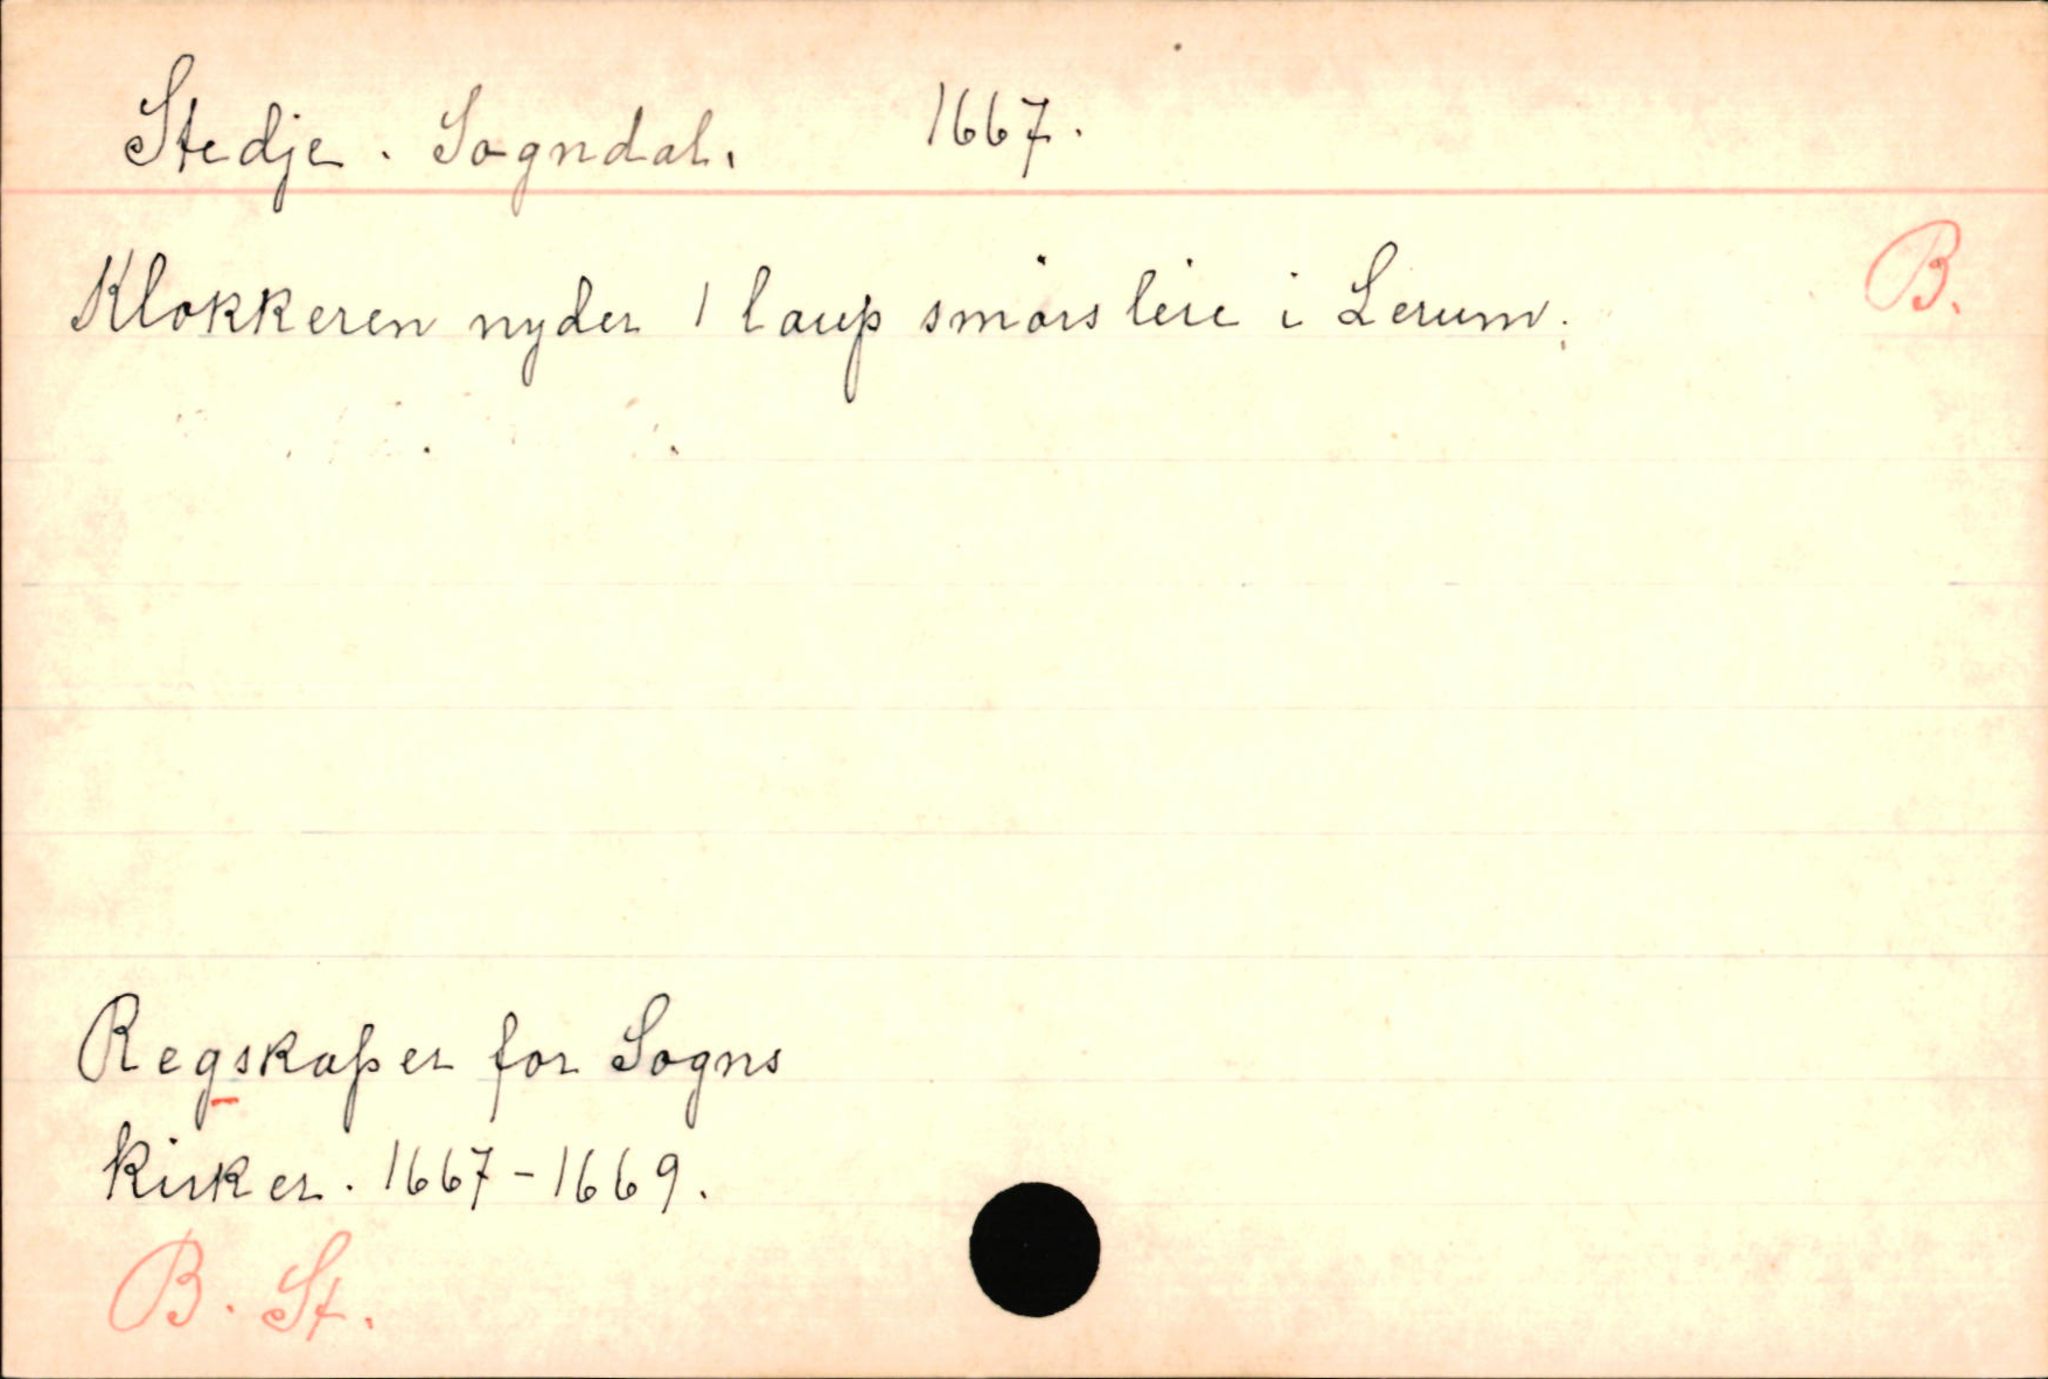 Stedje. Sogndal. 1667.
B.
Klokkeren nyder 1 laup smörsleie i Lerum.
Regskaper for Sogns
kirker. 1667-1669.
B. St.